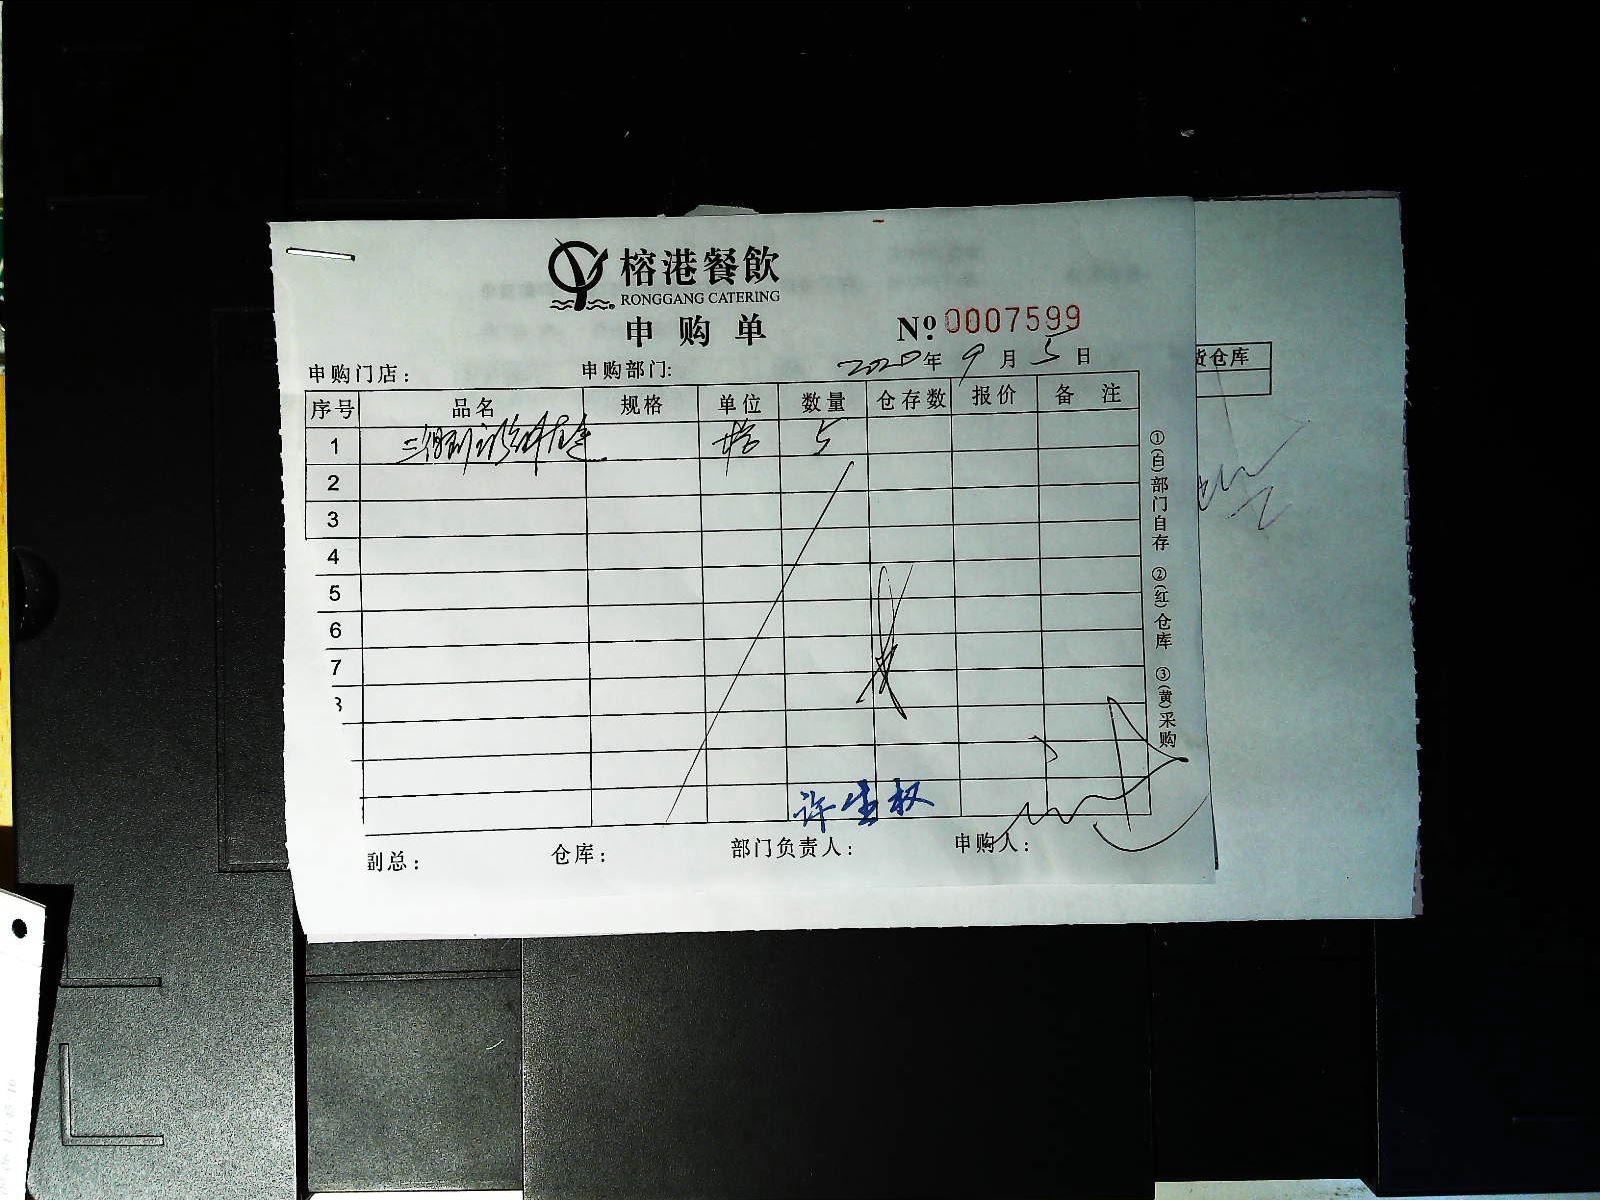 榕港餐飲
RONGGANG CATERING
申购单
№ 0007599
申购门店： 申购部门: 2020年9月5日
序号 品名 规格 单位 数量 仓存数 报价 备 注
1 5
2
3
4
5
6
7
8
许生权
副总： 仓库： 部门负责人： 申购人：
①(白)部门自存 ②(红)仓库 ③(黄)采购
货仓库